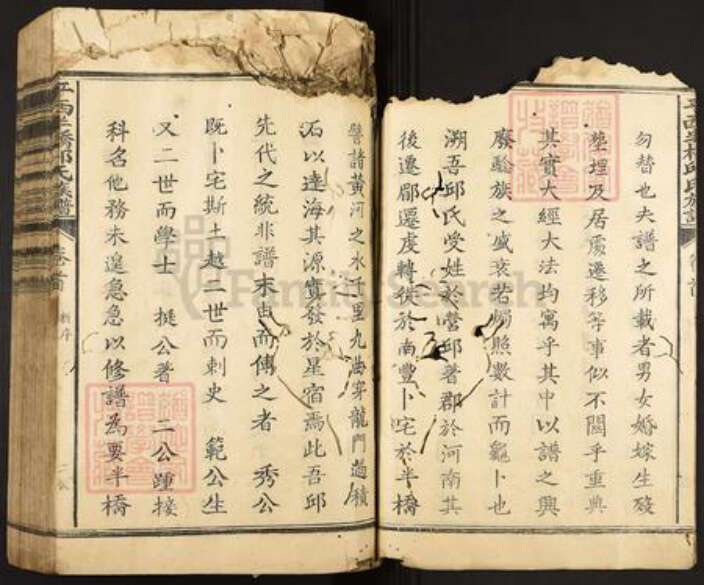 勿替也夫譜之所載者男女婚嫁生歿
塋埋及居處遷移等事似不關乎重典
其實大經大法均寓乎其中以譜之興
廢驗族之盛衰若燭照數計而龜卜也
溯吾邱氏受姓於營邱著郡於河南其
後遷鄢遷虔轉徙於南豐卜宅於半橋
譬諸黃河之水千里九曲穿龍門過積
石以達海其源實發於星宿焉此吾邱
先代之統非譜末由而傳之者 秀公
既卜宅斯土越二世而刺史 範公生
又二世而學士 挺公著 二公踵接
科名他務未遑急急以修譜為要半橋
邱氏族譜
卷首
新序
FamilySearch